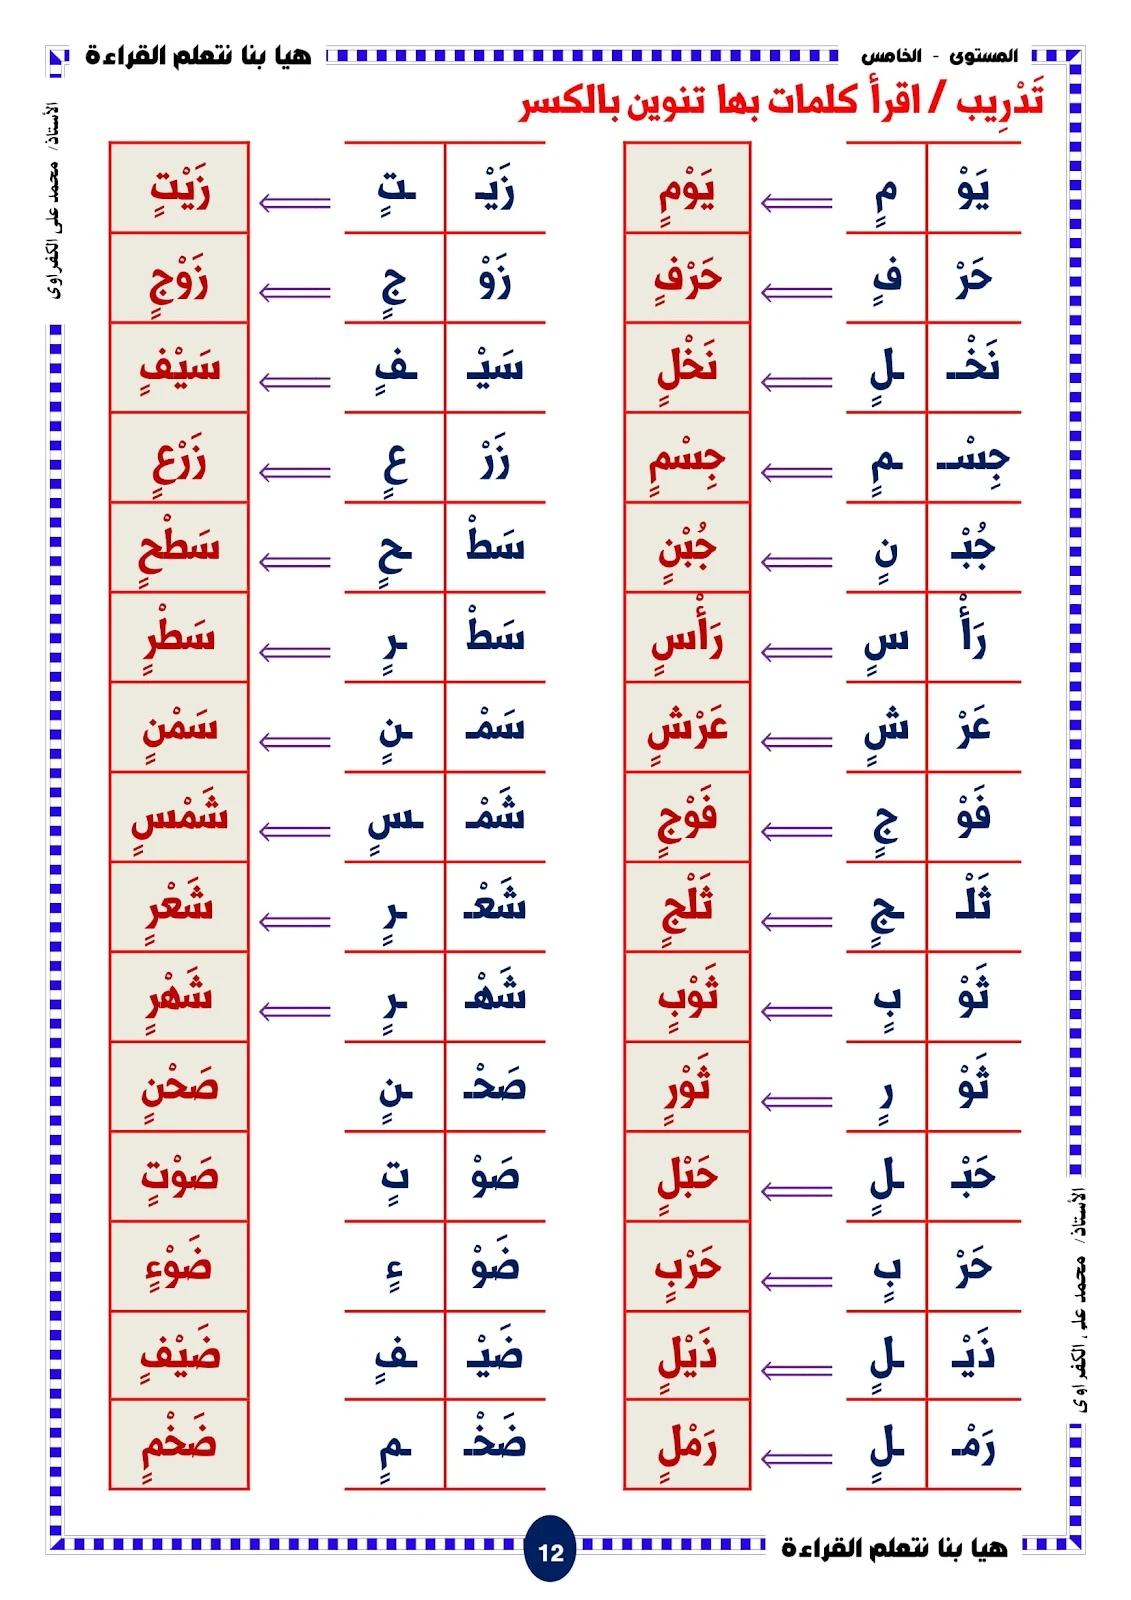 المستوى - الخامس هيا بنا نتعلم القراءة
تَدْرِيب / اقرأ كلمات بها تنوين بالكسر
يَوْ مٍ يَوْمٍ زَيْـ ـتٍ زَيْتٍ
حَرْ فٍ حَرْفٍ زَوْ جٍ زَوْجٍ
نَخْـ ـلٍ نَخْلٍ سَيْـ ـفٍ سَيْفٍ
جِسْـ ـمٍ جِسْمٍ زَرْ عٍ زَرْعٍ
جُبْـ نٍ جُبْنٍ سَطْ ـحٍ سَطْحٍ
رَأْ سٍ رَأْسٍ سَطْ ـرٍ سَطْرٍ
عَرْ شٍ عَرْشٍ سَمْـ ـنٍ سَمْنٍ
فَوْ جٍ فَوْجٍ شَمْـ ـسٍ شَمْسٍ
ثَلْـ ـجٍ ثَلْجٍ شَعْـ ـرٍ شَعْرٍ
ثَوْ بٍ ثَوْبٍ شَهْـ ـرٍ شَهْرٍ
ثَوْ رٍ ثَوْرٍ صَحْـ ـنٍ صَحْنٍ
حَبْـ ـلٍ حَبْلٍ صَوْ تٍ صَوْتٍ
حَرْ بٍ حَرْبٍ ضَوْ ءٍ ضَوْءٍ
ذَيْـ ـلٍ ذَيْلٍ ضَيْـ ـفٍ ضَيْفٍ
رَمْـ ـلٍ رَمْلٍ ضَخْـ ـمٍ ضَخْمٍ
هيا بنا نتعلم القراءة 12
الأستاذ/ محمد على الكفراوى
الأستاذ/ محمد على الكفراوى